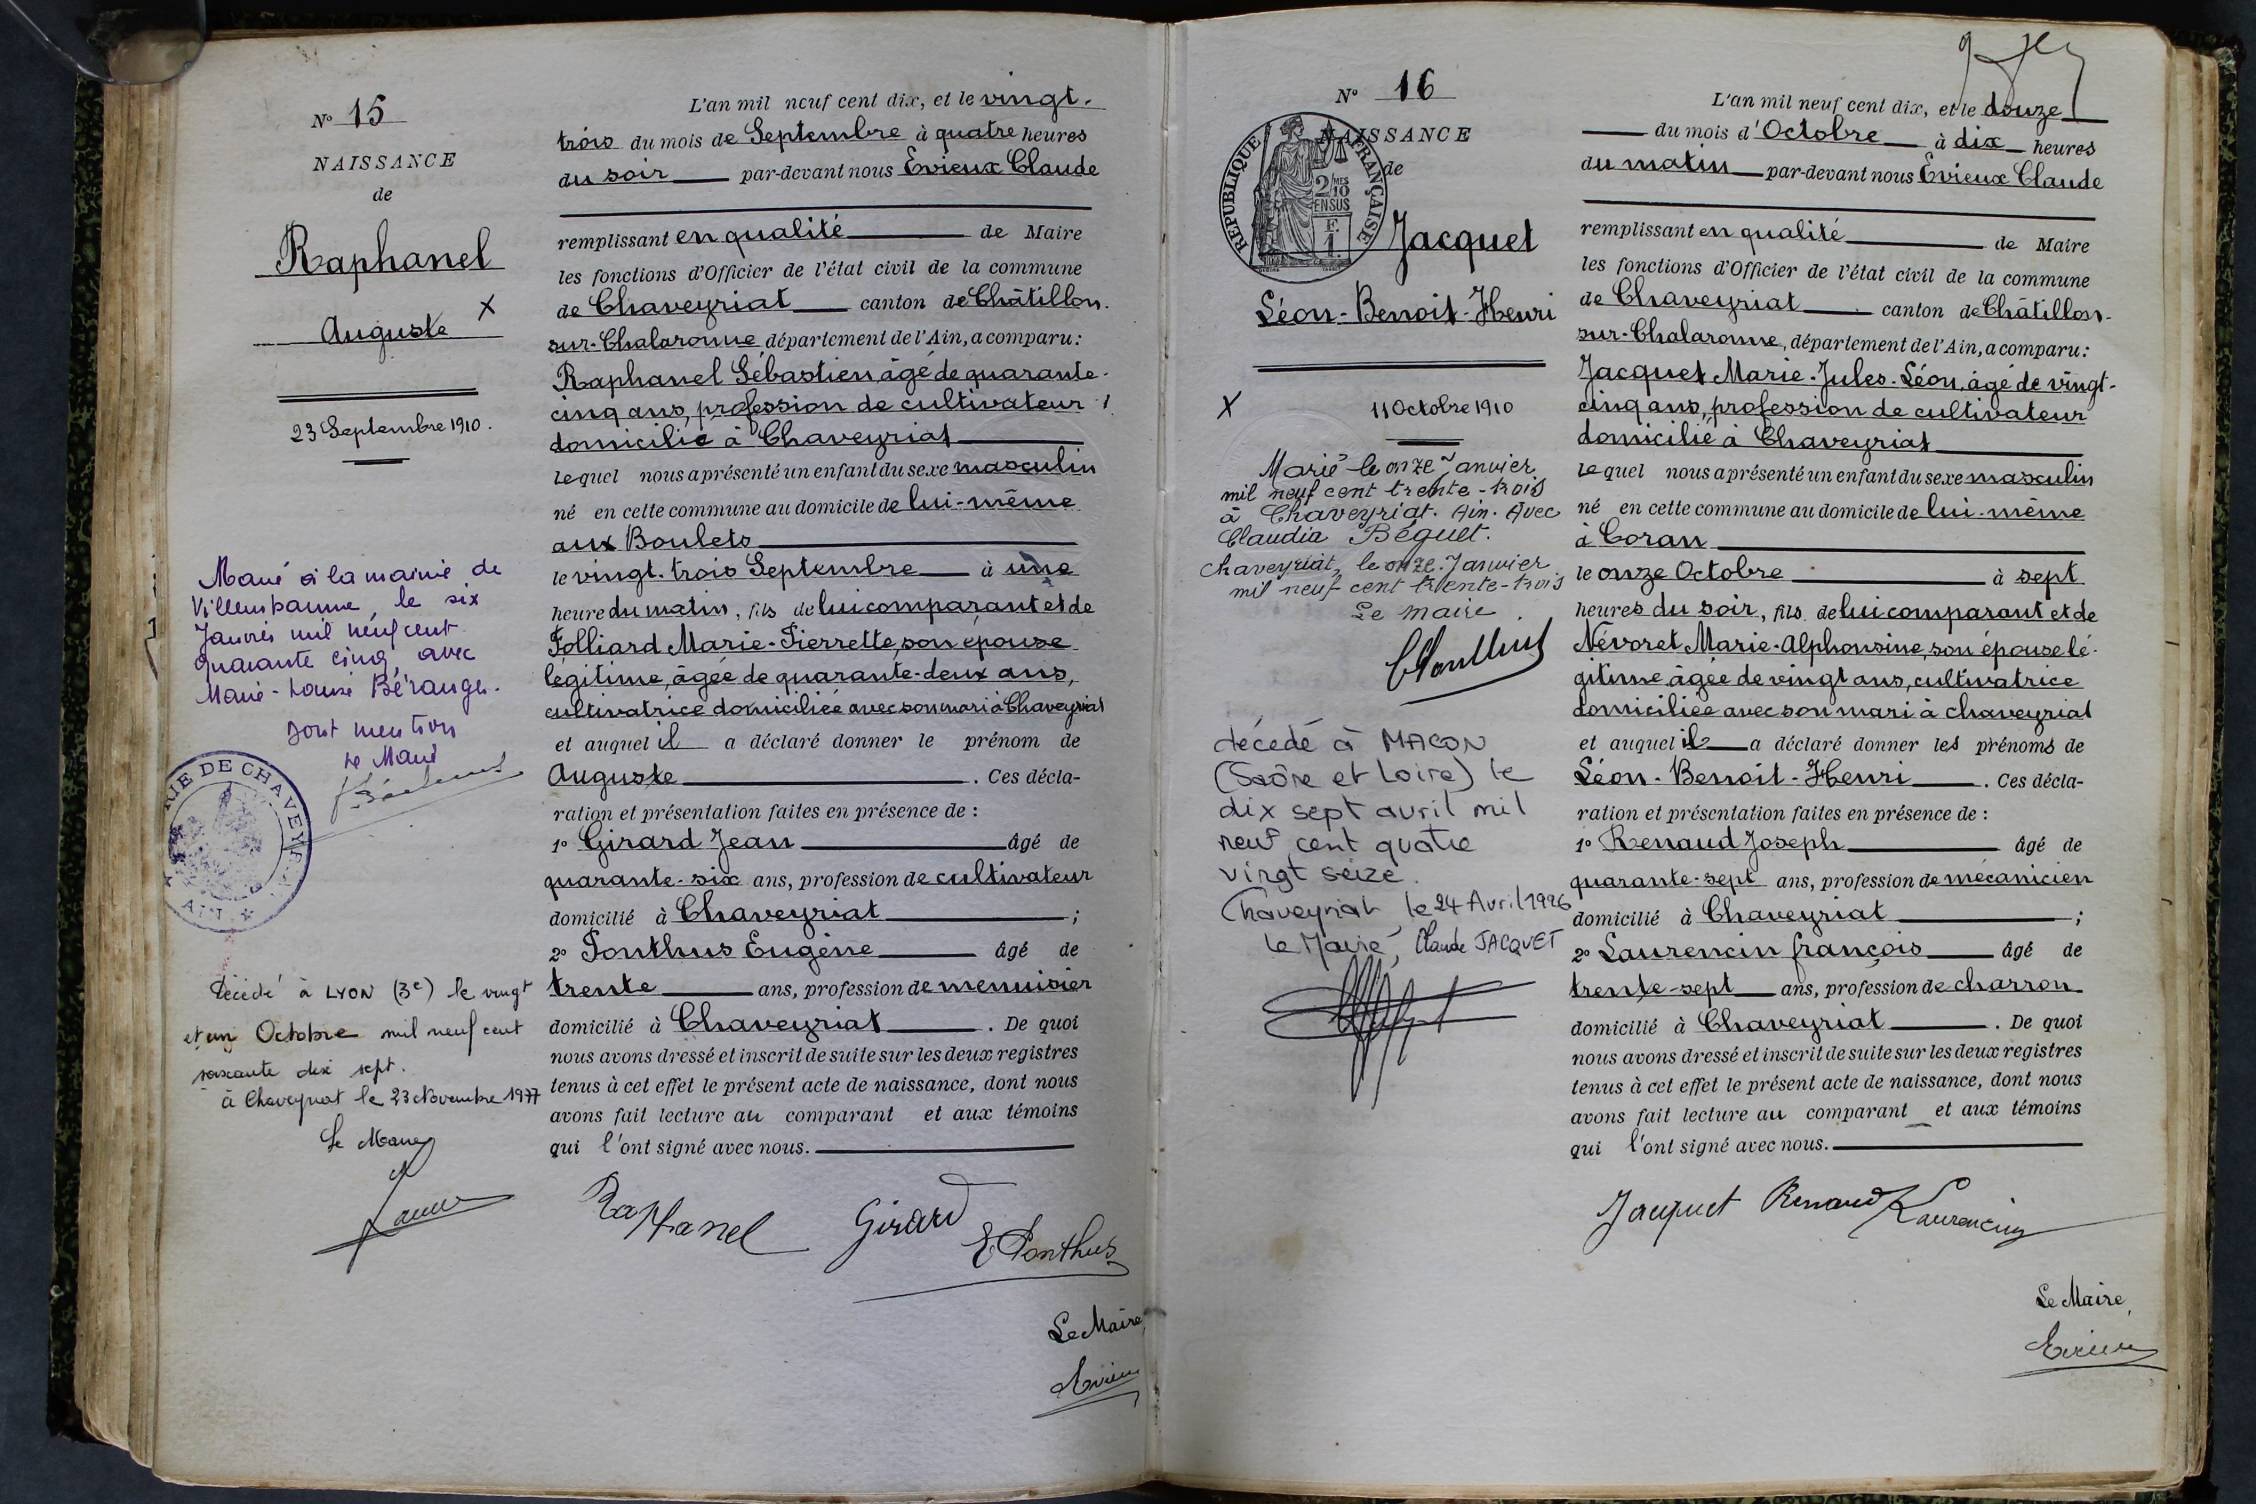 Nº 15
NAISSANCE
de
Raphanel
Auguste X
23 Septembre 1910.
Marié à la mairie de
Villeurbanne, le six
Janvier mil neuf cent
quarante cinq, avec
Marie-Louise Béranger.
Dont mention
Le Maire
MAIRIE DE CHAVEYRIAT
AIN
Décédé à LYON (3e) le vingt
et un Octobre mil neuf cent
soixante dix sept.
à Chaveyriat le 23 Novembre 1977
Le Maire
L'an mil neuf cent dix, et le vingt-
trois du mois de Septembre à quatre heures
du soir par-devant nous Evieux Claude
remplissant en qualité de Maire
les fonctions d'Officier de l'état civil de la commune
de Chaveyriat canton de Châtillon-
sur-Chalaronne, département de l'Ain, a comparu:
Raphanel Sébastien, âgé de quarante-
cinq ans, profession de cultivateur
domicilié à Chaveyriat
lequel nous a présenté un enfant du sexe masculin
né en cette commune au domicile de lui-même
aux Boulets
le vingt-trois Septembre à une
heure du matin, fils de lui comparant et de
Folliard Marie-Pierrette, son épouse
légitime, âgée de quarante-deux ans,
cultivatrice domiciliée avec son mari à Chaveyriat
et auquel il a déclaré donner le prénom de
Auguste. Ces décla-
ration et présentation faites en présence de :
1º Girard Jean âgé de
quarante-six ans, profession de cultivateur
domicilié à Chaveyriat ;
2º Ponthus Eugène âgé de
trente ans, profession de menuisier
domicilié à Chaveyriat. De quoi
nous avons dressé et inscrit de suite sur les deux registres
tenus à cet effet le présent acte de naissance, dont nous
avons fait lecture au comparant et aux témoins
qui l'ont signé avec nous.
Raphanel Girard
E Ponthus
Le Maire,
Evieux
Nº 16
NAISSANCE
de
REPUBLIQUE FRANÇAISE
2/10 MES
EN SUS
F.
1.
Jacquet
Léon-Benoit-Henri
X
11 Octobre 1910
Marié le onze Janvier
mil neuf cent trente-trois
à Chaveyriat. Ain. Avec
Claudia Béguet.
Chaveyriat, le onze Janvier
mil neuf cent trente-trois
Le maire
décédé à MACON
(Saône et Loire) le
dix sept avril mil
neuf cent quatre
vingt seize.
Chaveyriat, le 24 Avril 1996
Le Maire, Claude JACQUET
L'an mil neuf cent dix, et le douze
du mois d'Octobre à dix heures
du matin par-devant nous Evieux Claude
remplissant en qualité de Maire
les fonctions d'Officier de l'état civil de la commune
de Chaveyriat canton de Châtillon-
sur-Chalaronne, département de l'Ain, a comparu:
Jacquet Marie-Jules-Léon, âgé de vingt-
cinq ans, profession de cultivateur
domicilié à Chaveyriat
lequel nous a présenté un enfant du sexe masculin
né en cette commune au domicile de lui-même
à Coran
le onze Octobre à sept
heures du soir, fils de lui comparant et de
Névoret Marie-Alphonsine, son épouse lé-
gitime, âgée de vingt ans, cultivatrice
domiciliée avec son mari à chaveyriat
et auquel il a déclaré donner les prénoms de
Léon-Benoit-Henri. Ces décla-
ration et présentation faites en présence de :
1º Renaud Joseph âgé de
quarante-sept ans, profession de mécanicien
domicilié à Chaveyriat ;
2º Laurencin françois âgé de
trente-sept ans, profession de charron
domicilié à Chaveyriat. De quoi
nous avons dressé et inscrit de suite sur les deux registres
tenus à cet effet le présent acte de naissance, dont nous
avons fait lecture au comparant et aux témoins
qui l'ont signé avec nous.
Jacquet Renaud Laurencin
Le Maire,
Evieux